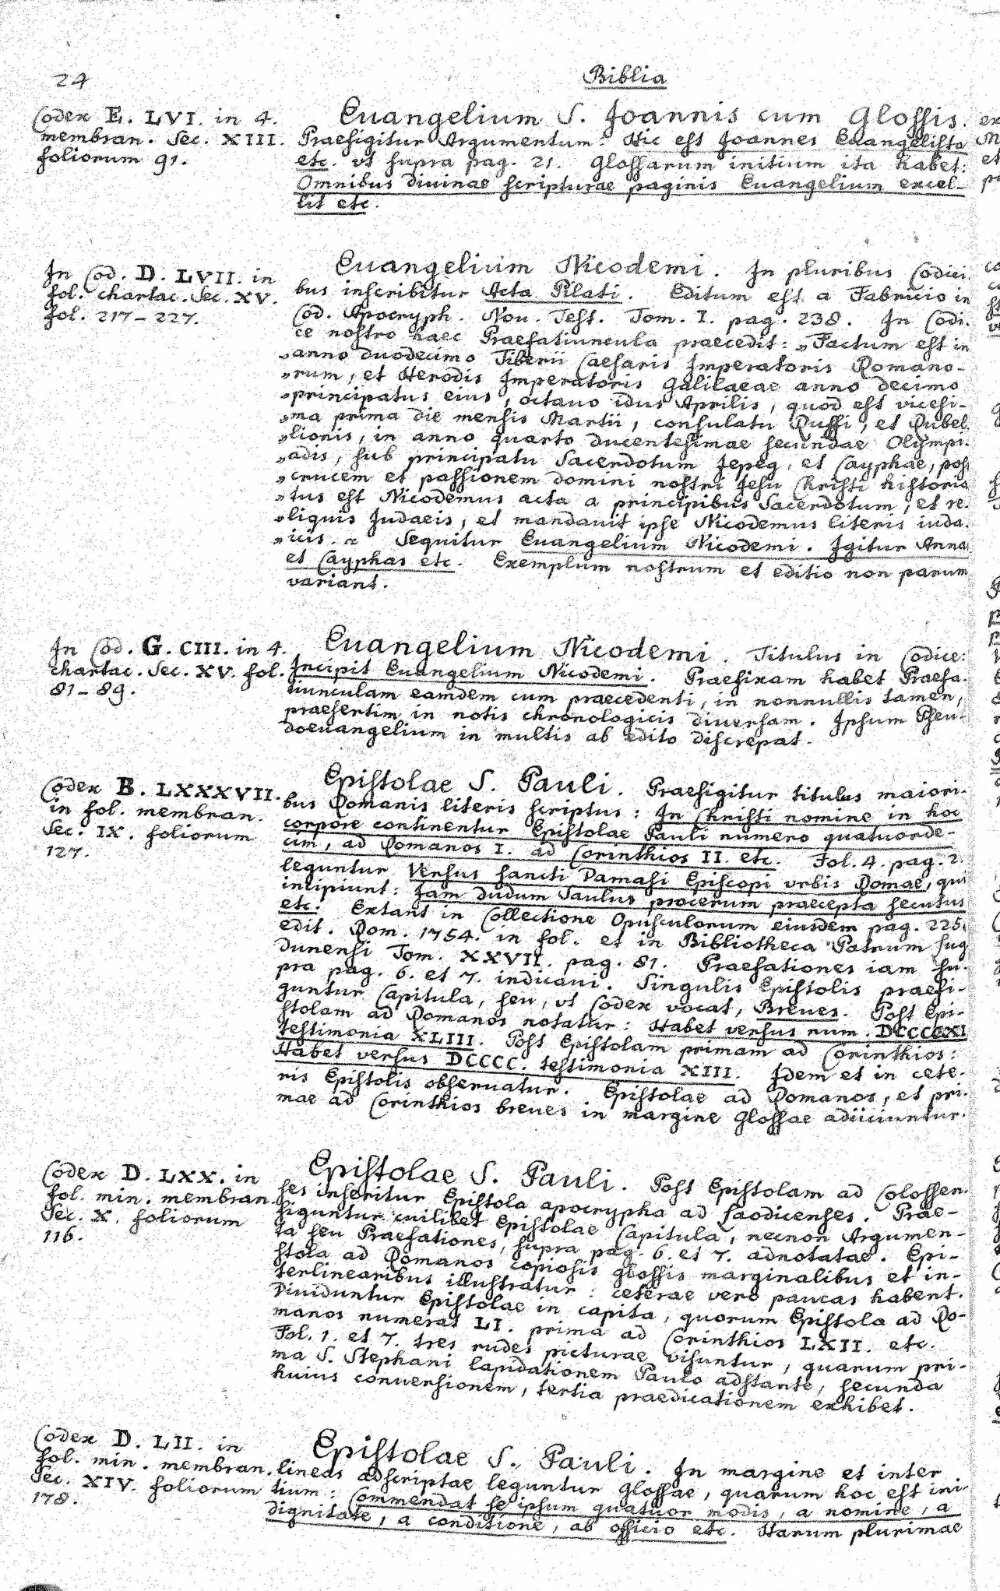 24
Biblia
Codex E. LVI. in 4.
membran. Sec. XIII.
foliorum 91.
Euangelium S. Joannis cum Glossis.
Praefigitur Argumentum: Hic est Joannes Euangelista
etc. vt supra pag. 21. Glossarum initium ita habet:
Omnibus diuinae scripturae paginis Euangelium excel-
lit etc.
In Cod. D. LVII. in
fol. chartac. Sec. XV.
fol. 217-227.
Euangelium Nicodemi. In pluribus Codici-
bus inscribitur Acta Pilati. Editum est a Fabricio in
Cod. Apocryph. Nou. Test. Tom. I. pag. 238. In Codi-
ce nostro haec Praefatiuncula praecedit: „Factum est in
„anno duodecimo Tiberii Caesaris Imperatoris Romano-
„rum, et Herodis Imperatoris Galilaeae anno decimo
„principatus eius, octauo idus Aprilis, quod est vicesi-
„ma prima die mensis Martii, consulatu Ruffi, et Rubel
„lionis, in anno quarto ducentesimae secundae Olympi-
„adis, sub principatu Sacerdotum Jepeg, et Cayphae, post
„crucem et passionem domini nostri Jesu Christi historia
„tus est Nicodemus acta a principibus Sacerdotum, et re-
„liquis Judaeis, et mandauit ipse Nicodemus literis iuda-
„icis. „ Sequitur Euangelium Nicodemi. Igitur Anna
et Cayphas etc. Exemplum nostrum et editio non parum
variant.
In Cod. G. CIII. in 4.
chartac. Sec. XV. fol.
81-89.
Euangelium Nicodemi. Titulus in Codice:
Incipit Euangelium Nicodemi. Praefixam habet Praefa-
tiunculam eamdem cum praecedenti, in nonnullis tamen,
praesertim in notis chronologicis diuersam. Ipsum Pseu-
doeuangelium in multis ab edito discrepat.
Codex B. LXXXVII.
in fol. membran.
Sec. IX. foliorum
127.
Epistolae S. Pauli. Praefigitur titulus maiori-
bus Romanis literis scriptus: In Christi nomine in hoc
corpore continentur Epistolae Pauli numero quatuorde-
cim, ad Romanos I. ad Corinthios II. etc. Fol. 4. pag. 2.
leguntur Versus sancti Damasi Episcopi vrbis Romae, qui
incipiunt: Jam dudum Saulus procerum praecepta secutus
etc. Extant in Collectione Opusculorum eiusdem pag. 225.
edit. Rom. 1754. in fol. et in Bibliotheca Patrum Lug
dunensi Tom. XXVII. pag. 81. Praefationes iam su-
pra pag. 6. et 7. indicaui. Singulis Epistolis praefi-
guntur Capitula, seu, vt Codex vocat, Breues. Post Epi-
stolam ad Romanos notatur: Habet versus num. DCCCCXI
testimonia XLIII. Post Epistolam primam ad Corinthios:
Habet versus DCCCC. testimonia XIII. Idem et in cete-
ris Epistolis obseruatur. Epistolae ad Romanos, et pri-
mae ad Corinthios breues in margine Glossae adiiciuntur.
Codex D. LXX. in
fol. min. membran.
Sec. X. foliorum
116.
Epistolae S. Pauli. Post Epistolam ad Colossen-
ses inseritur Epistola apocrypha ad Laodicenses. Prae-
figuntur cuilibet Epistolae Capitula, necnon Argumen-
ta seu Praefationes, supra pag. 6. et 7. adnotatae. Epi-
stola ad Romanos copiosis glossis marginalibus et in-
terlinearibus illustratur: ceterae vero paucas habent.
Diuiduntur Epistolae in capita, quorum Epistola ad Ro-
manos numerat LI. prima ad Corinthios LXII. etc.
Fol. 1. et 7. tres rudes picturae visuntur, quarum pri-
ma S. Stephani lapidationem Paulo adstante, secunda
huius conuersionem, tertia praedicationem exhibet.
Codex D. LII. in
fol. min. membran.
Sec. XIV. foliorum
178.
Epistolae S. Pauli. In margine et inter
lineas adscriptae leguntur Glossae, quarum hoc est ini-
tium: Commendat se ipsum quatuor modis, a nomine, a
dignitate, a conditione, ab officio etc. Harum plurimae